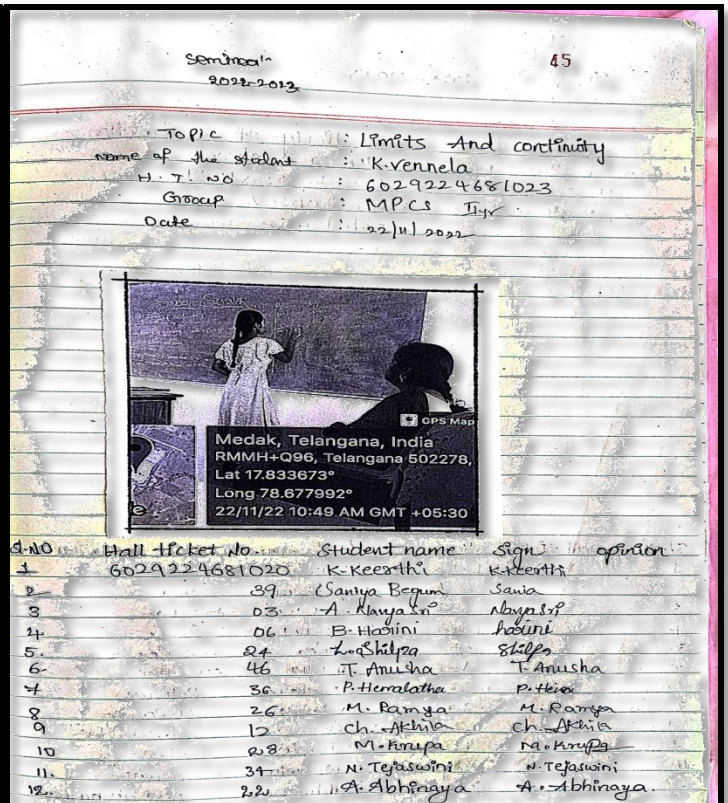 Seminar
45
2022-2023
Topic : Limits And continuity
Name of the student : K.vennela
H.T. NO : 6029224681023
Group : MPCS IIyr
Date : 22/11/2022
GPS Map
Medak, Telangana, India
RMMH+Q96, Telangana 502278,
Lat 17.833673°
Long 78.677992°
22/11/22 10:49 AM GMT +05:30
Sl.NO Hall ticket No. Student name Sign opinion
1 6029224681020 K.Keerthi K.Keerthi
2 39 Saniya Begum Sania
3 03 A. NavyaSri NavyaSri
4 06 B. Harini harini
5. 24 Shilpa Shilpa
6. 46 T. Anusha T. Anusha
7 36 P. Hemalatha P. Hema
8 26 M. Ramya M. Ramya
9 12 Ch. Akhila Ch. Akhila
10 28 M. Krupa M. Krupa
11. 34 N. Tejaswini N. Tejaswini
12. 22 A. Abhinaya A. Abhinaya.